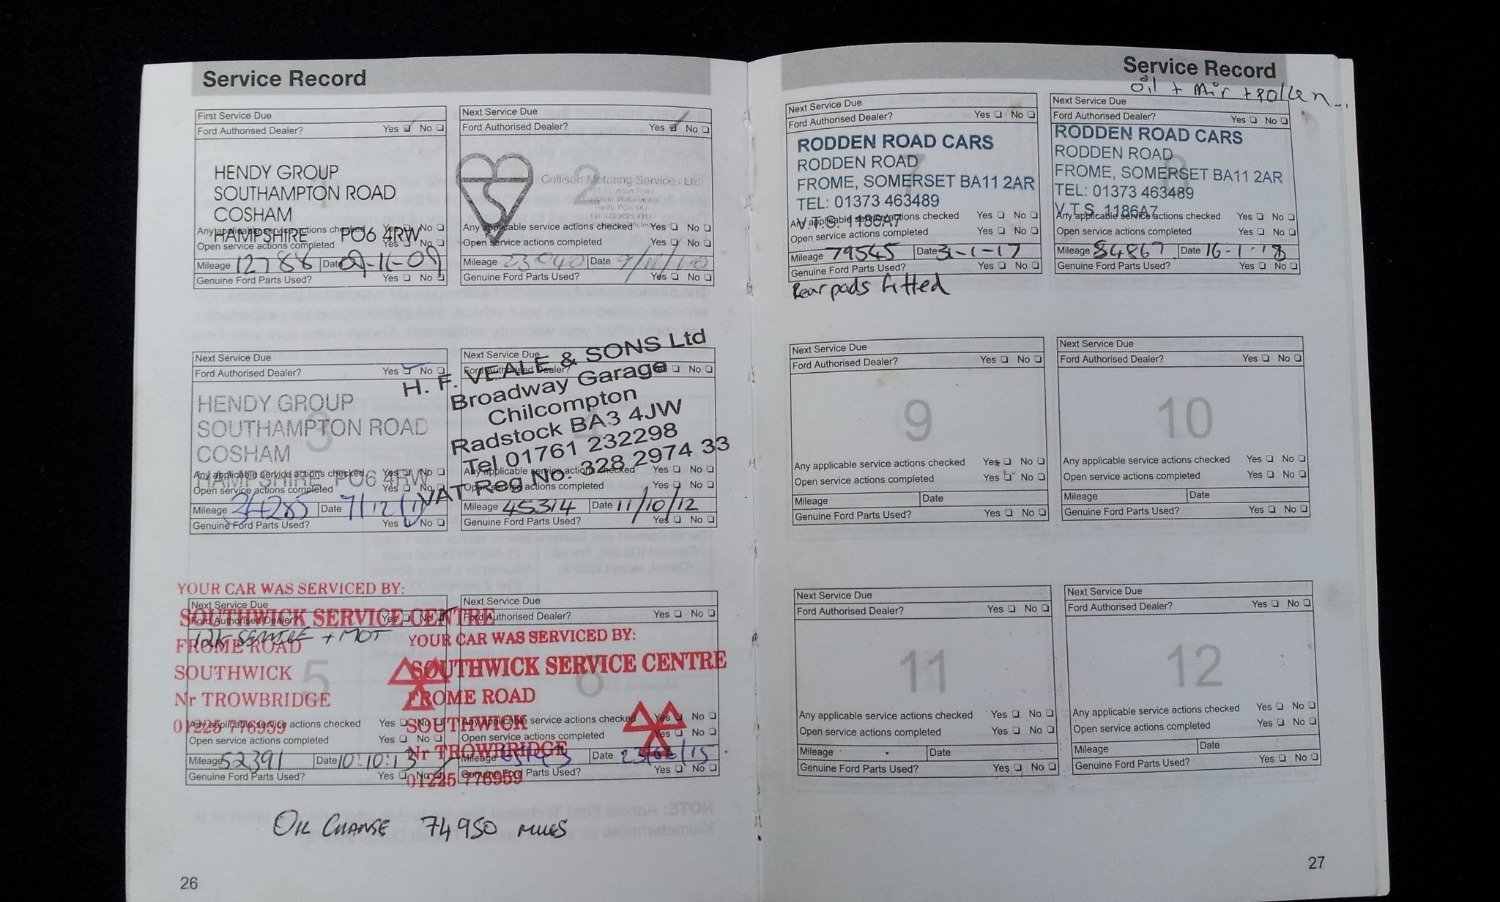 Service Record
First Service Due
Ford Authorised Dealer? Yes No
HENDY GROUP
SOUTHAMPTON ROAD
COSHAM
HAMPSHIRE PO6 4RW
Any applicable service actions checked Yes No
Open service actions completed Yes No
Mileage 12788 Date 09-11-09
Genuine Ford Parts Used? Yes No
Next Service Due
Ford Authorised Dealer? Yes No
2
Collision Motoring Services Ltd
Any applicable service actions checked Yes No
Open service actions completed Yes No
Mileage Date
Genuine Ford Parts Used? Yes No
Next Service Due
Ford Authorised Dealer? Yes No
3
HENDY GROUP
SOUTHAMPTON ROAD
COSHAM
HAMPSHIRE PO6 4RW
Any applicable service actions checked Yes No
Open service actions completed Yes No
Mileage 34285 Date 7/12/11
Genuine Ford Parts Used? Yes No
Next Service Due
Ford Authorised Dealer? Yes No
H. F. VEALE & SONS Ltd
Broadway Garage
Chilcompton
Radstock BA3 4JW
Tel 01761 232298
VAT Reg No. 328 2974 33
Any applicable service actions checked Yes No
Open service actions completed Yes No
Mileage 45314 Date 11/10/12
Genuine Ford Parts Used? Yes No
YOUR CAR WAS SERVICED BY:
Next Service Due
SOUTHWICK SERVICE CENTRE
Ford Authorised Dealer? Yes No
12K SERVICE + MOT
FROME ROAD
SOUTHWICK
5
Nr TROWBRIDGE
01225 776959
Any applicable service actions checked Yes No
Open service actions completed Yes No
Mileage 52391 Date 10.10.13
Genuine Ford Parts Used? Yes No
Next Service Due
Ford Authorised Dealer? Yes No
YOUR CAR WAS SERVICED BY:
SOUTHWICK SERVICE CENTRE
6
FROME ROAD
SOUTHWICK
Nr TROWBRIDGE
01225 776959
Any applicable service actions checked Yes No
Open service actions completed Yes No
Mileage Date 23/06/15
Genuine Ford Parts Used? Yes No
OIL CHANGE 74950 MILES
26
Service Record
Oil + Air + pollen
Next Service Due
Ford Authorised Dealer? Yes No
RODDEN ROAD CARS
RODDEN ROAD
7
FROME, SOMERSET BA11 2AR
TEL: 01373 463489
V.T.S. 1186A7
Any applicable service actions checked Yes No
Open service actions completed Yes No
Mileage 79545 Date 31-1-17
Genuine Ford Parts Used? Yes No
Rear pads fitted
Next Service Due
Ford Authorised Dealer? Yes No
RODDEN ROAD CARS
RODDEN ROAD
8
FROME, SOMERSET BA11 2AR
TEL: 01373 463489
V.T.S. 1186A7
Any applicable service actions checked Yes No
Open service actions completed Yes No
Mileage 84867 Date 16-1-18
Genuine Ford Parts Used? Yes No
Next Service Due
Ford Authorised Dealer? Yes No
9
Any applicable service actions checked Yes No
Open service actions completed Yes No
Mileage Date
Genuine Ford Parts Used? Yes No
Next Service Due
Ford Authorised Dealer? Yes No
10
Any applicable service actions checked Yes No
Open service actions completed Yes No
Mileage Date
Genuine Ford Parts Used? Yes No
Next Service Due
Ford Authorised Dealer? Yes No
11
Any applicable service actions checked Yes No
Open service actions completed Yes No
Mileage Date
Genuine Ford Parts Used? Yes No
Next Service Due
Ford Authorised Dealer? Yes No
12
Any applicable service actions checked Yes No
Open service actions completed Yes No
Mileage Date
Genuine Ford Parts Used? Yes No
27